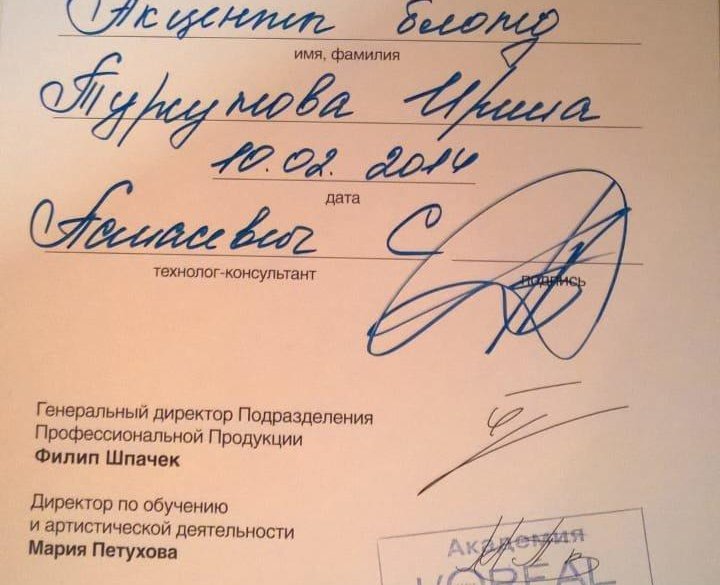 Акценты блонд
имя, фамилия
Ирина
10.02.2014
дата
С
технолог-консультант
подпись
Генеральный директор Подразделения
Профессиональной Продукции
Филип Шпачек
Директор по обучению
и артистической деятельности
Мария Петухова
Академия
L'ORÉAL